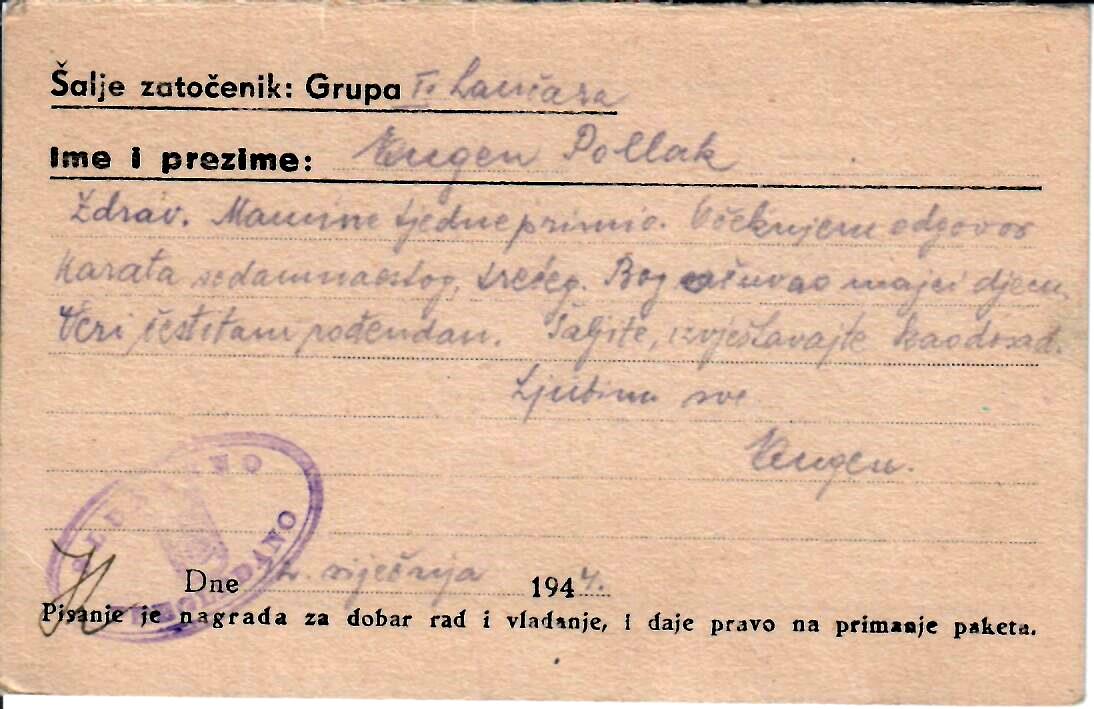 Šalje zatočenik: Grupa I. Lančara
Ime i prezime: Eugen Pollak
Zdrav. Mamine tjedne primio. Očekujem odgovor
Karata sedamnaestog, trećeg. Bog sačuvao majci djecu,
Veri čestitam rođendan. Šaljite, izvještavajte kao dosad.
Ljubim sve
Eugen.
Dne 2. siječnja 1944.
Pisanje je nagrada za dobar rad i vladanje, i daje pravo na primanje paketa.